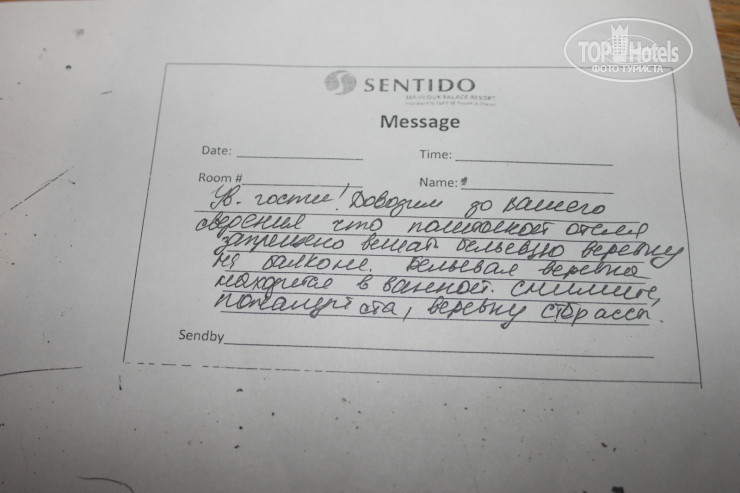 TOP Hotels
ФОТО ТУРИСТА
SENTIDO
PALACE RESORT
Message
Date:
Time:
Room #
Name:
Ув. гости! Доводим до вашего
сведения что политикой отеля
запрещено вешать бельевую веревку
на балконе. Бельевая веревка
находится в ванной. снимите,
пожалуйста, веревку с терассы.
Sendby